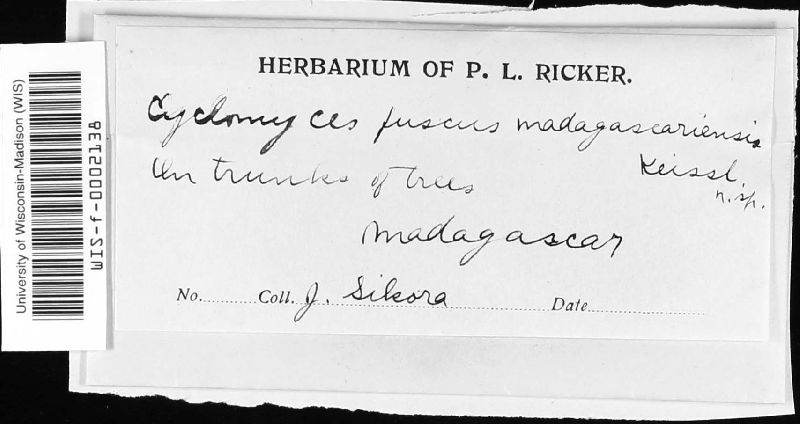 HERBARIUM OF P. L. RICKER.
Cyclomyces fuscus madagascariensis
Keissl.
n. sp.
On trunks of trees
Madagascar
No. Coll. J. Sikora Date
University of Wisconsin-Madison (WIS)
WIS-f-0001213B